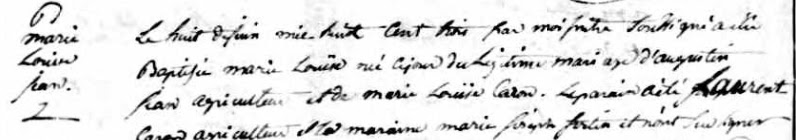 marie
Louise
jean.
Le huit de juin mil huit cent trois par moi prêtre soussigné a été
Baptisée marie Louise né ce jour du légitime mariage d'augustin
jean agriculteur et de marie Louise Caron. Le parain a été Laurent
Caron agriculteur et la maraine marie joseph fortin et n'ont su signer